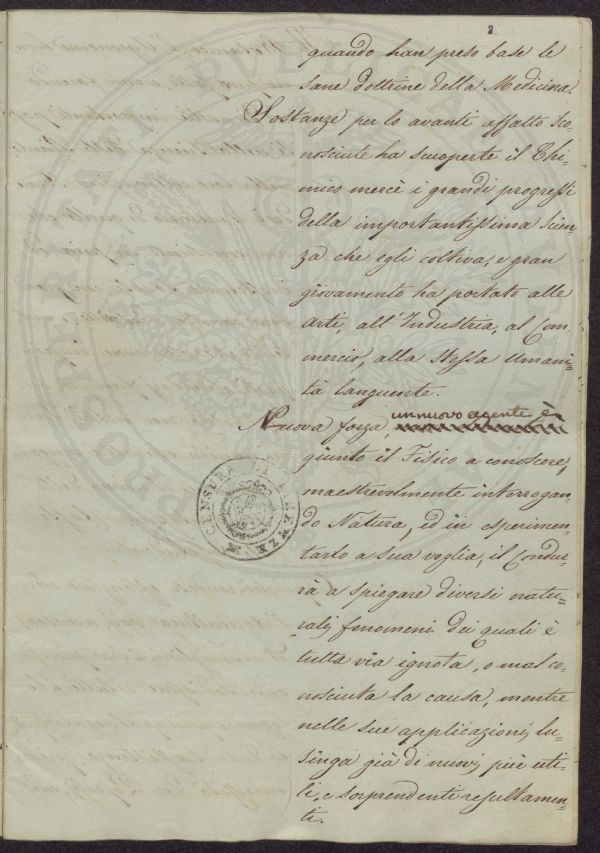 2
quando han preso base le
sane dottrine della Medicina.
Sostanze per lo avanti affatto sco-
nosciute ha scuoperte il Chi-
mico mercè i grandi progressi
della importantissima scien-
za che egli coltiva, e gran
giovamento ha portato alle
arti, all'Industria, al Com-
mercio, alla stessa Umani-
tà languente.
un nuovo agente è
Nuova forza,
giunto il Fisico a conoscere,
maestrevolmente interrogan-
do Natura, ed in esperimen-
tarlo a sua voglia, il condur-
rà a spiegare diversi natu-
ralj fenomeni dei quali è
tutta via ignota, o mal co-
nosciuta la causa, mentre
nelle sue applicazioni lu-
singa già di nuovi, più uti-
li, e sorprendente resultamen-
ti.
CENSURA DI